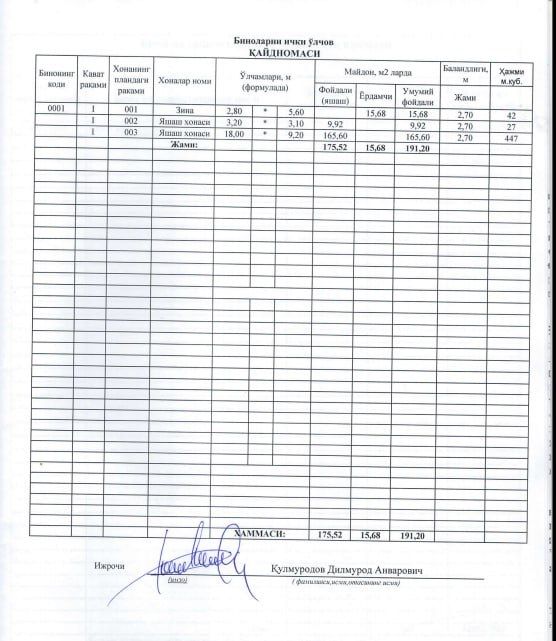 Биноларни ички ўлчов
ҚАЙДНОМАСИ
Бинонинг коди | Кават раками | Хонанинг пландаги раками | Хоналар номи | Ўлчамлари, м (формулада) | Майдон, м2 ларда | Баландлиги, м | Ҳажми м.куб.
Фойдали (яшаш) | Ёрдамчи | Умумий фойдали | Жами
0001 | I | 001 | Зина | 2,80 | * | 5,60 | 15,68 | 15,68 | 2,70 | 42
I | 002 | Яшаш хонаси | 3,20 | * | 3,10 | 9,92 | 9,92 | 2,70 | 27
I | 003 | Яшаш хонаси | 18,00 | * | 9,20 | 165,60 | 165,60 | 2,70 | 447
Жами: | 175,52 | 15,68 | 191,20
ХАММАСИ: | 175,52 | 15,68 | 191,20
Ижрочи Кулмуродов Дилмурод Анварович
(имзо) ( фамилияси,исми,отасининг исми)